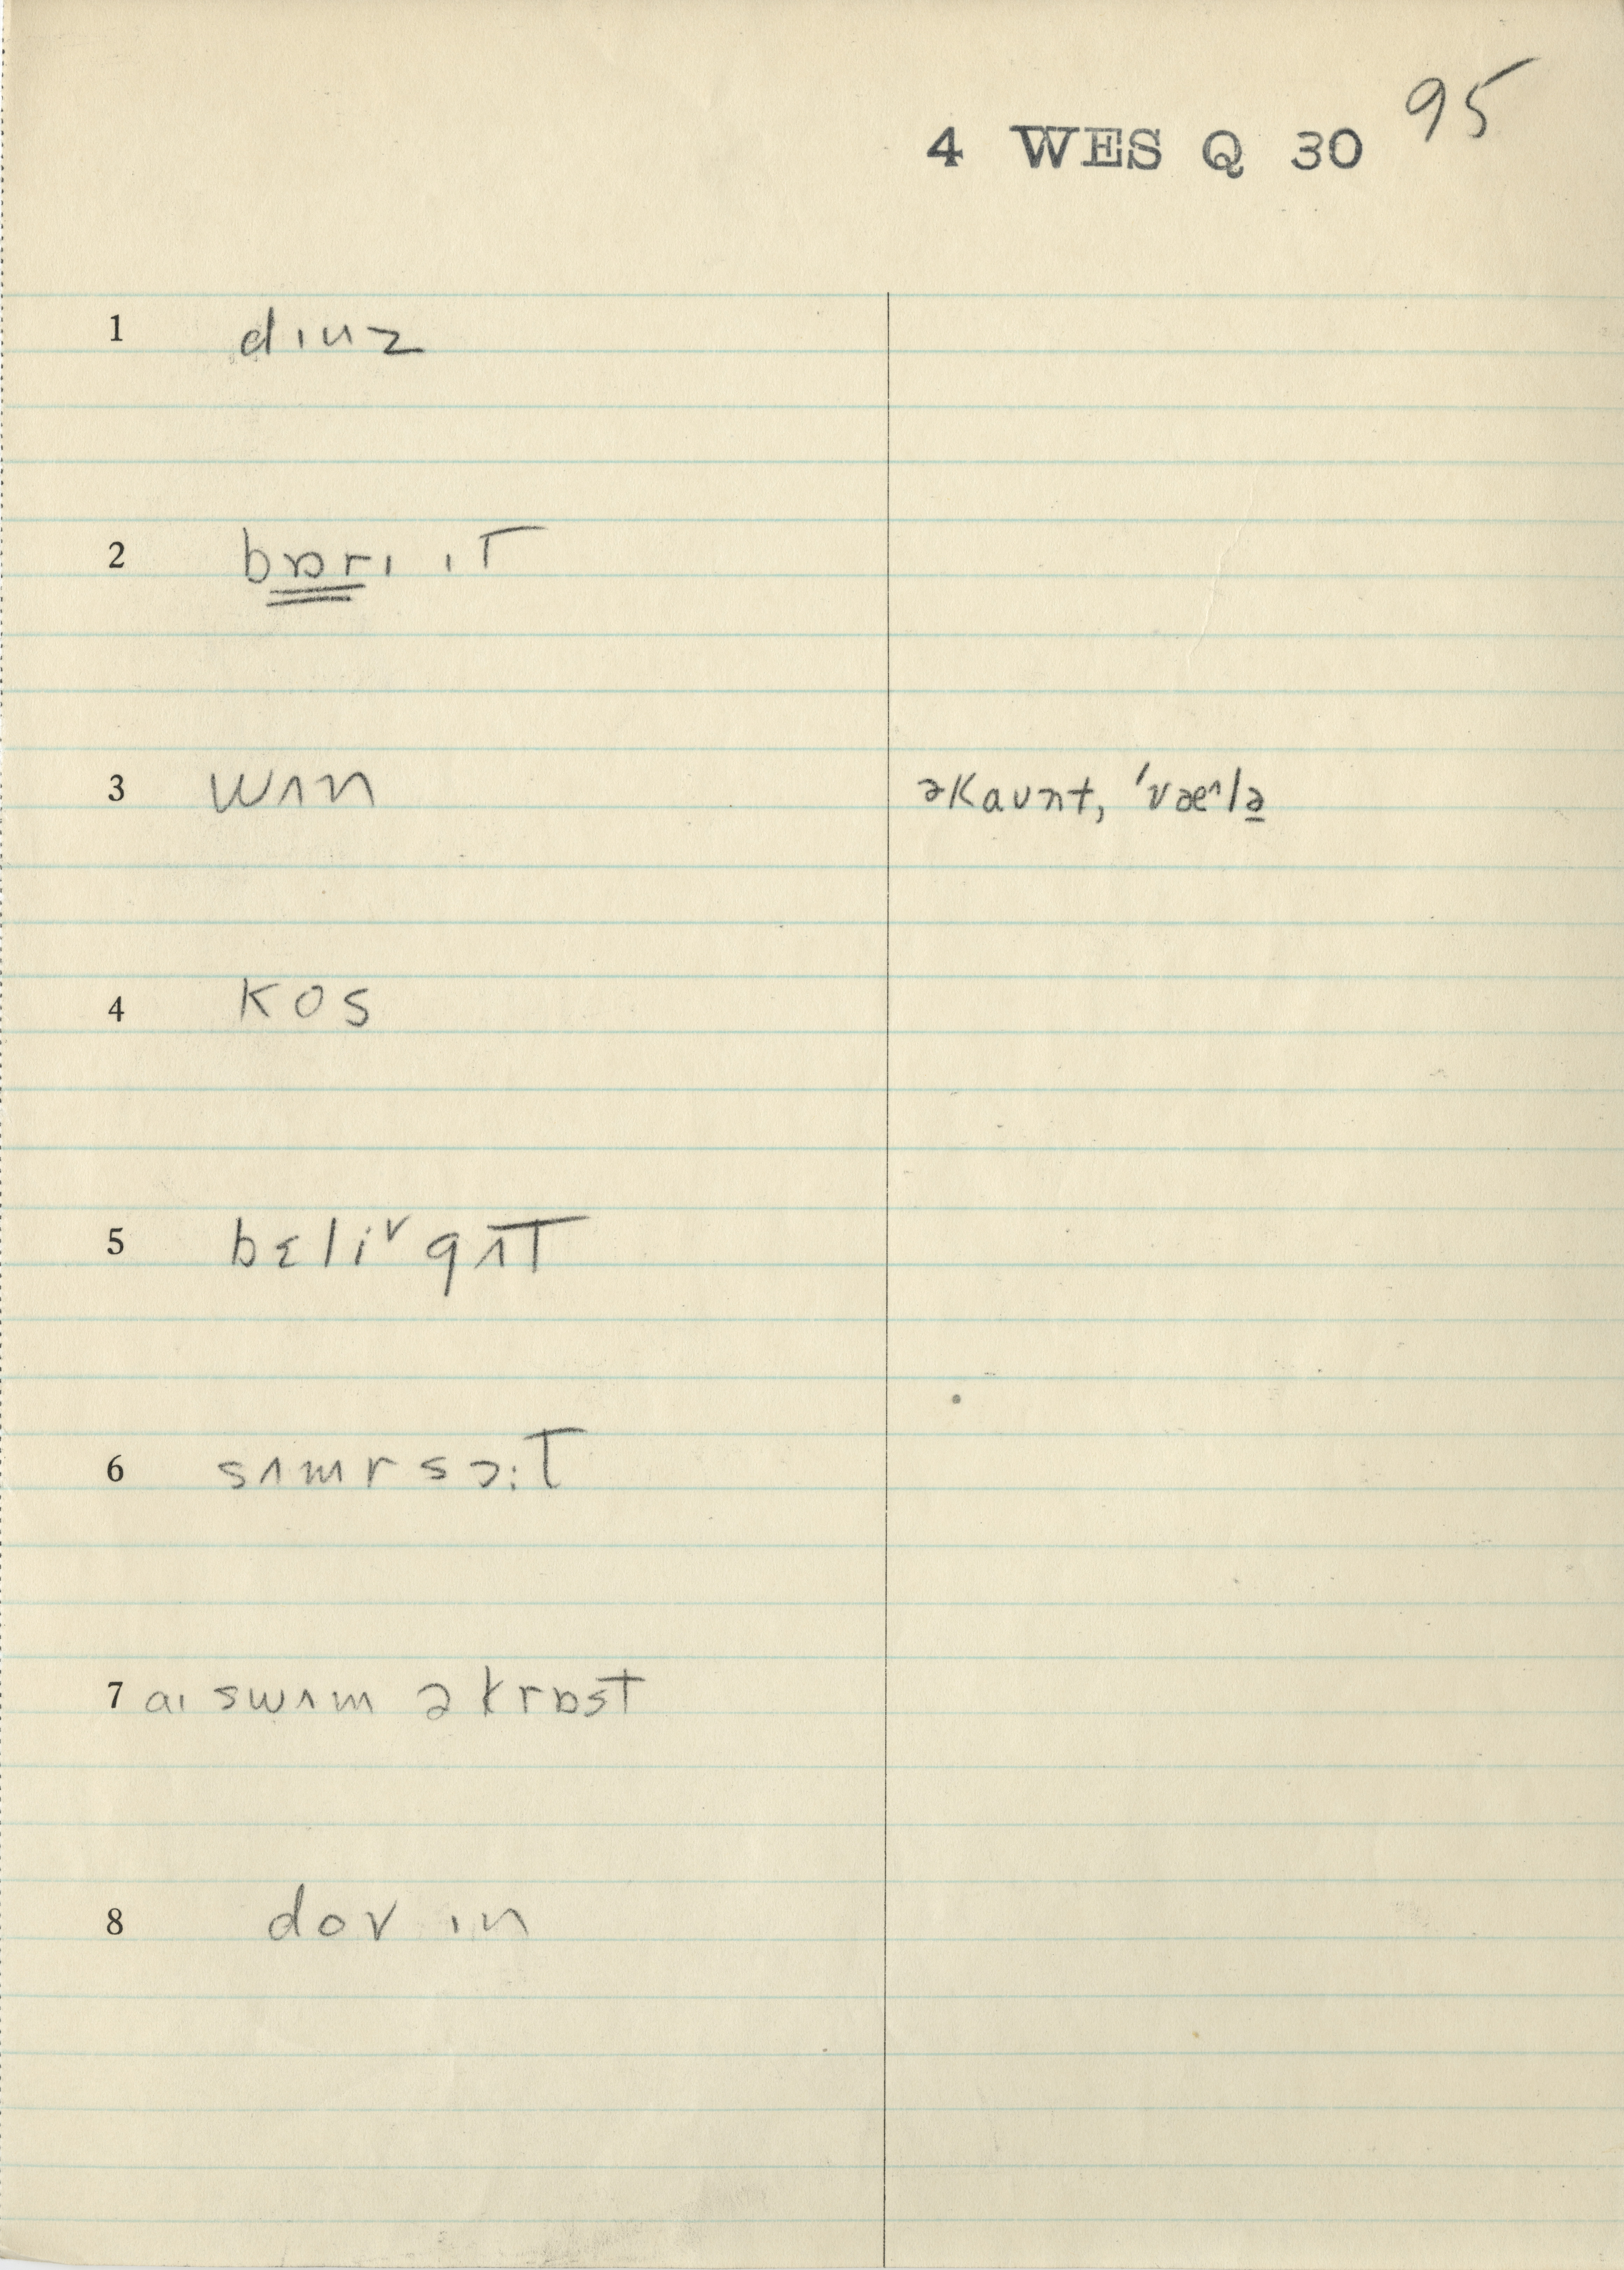 4 WES Q 30 95
1 dɪuz
2 bɒrɪ ɪT
3 wʌn əkaʊnt, 'væ^lə
4 kos
5 bɛli˅ gʌT
6 sʌmrsɔ:T
7 aɪ swʌm əkrɒst
8 dov ɪn